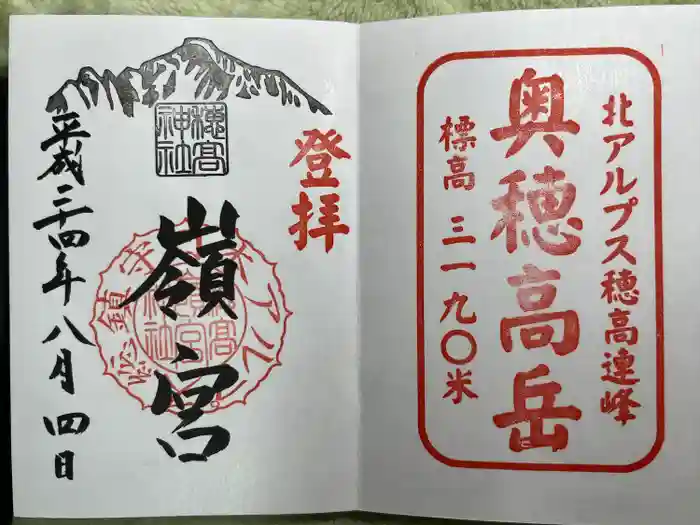 北アルプス穂高連峰
奥穂高岳
標高 三一九〇米
登拝
穂髙神社
嶺宮
平成二十四年八月四日